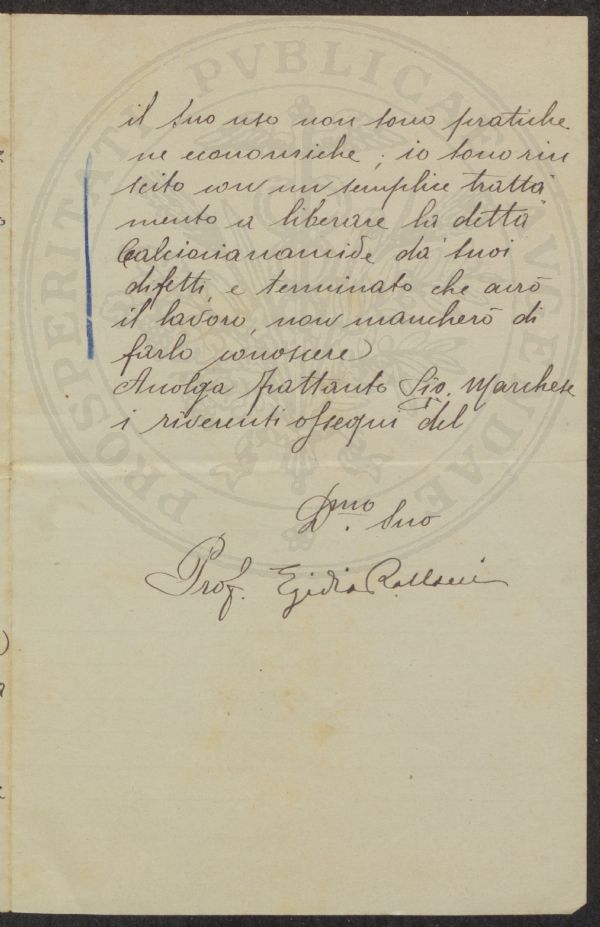 PROSPERITATI PVBLICAE AVGENDAE
il suo uso non sono pratiche
ne economiche; io sono riu
scito con un semplice tratta
mento a liberare la detta
Calciocianamide da' suoi
difetti, e terminato che avrò
il lavoro, non mancherò di
farlo conoscere
Accolga frattanto Sig. Marchese
i riverenti ossequi del
Dmo Suo
Prof. Egidio Pollacci